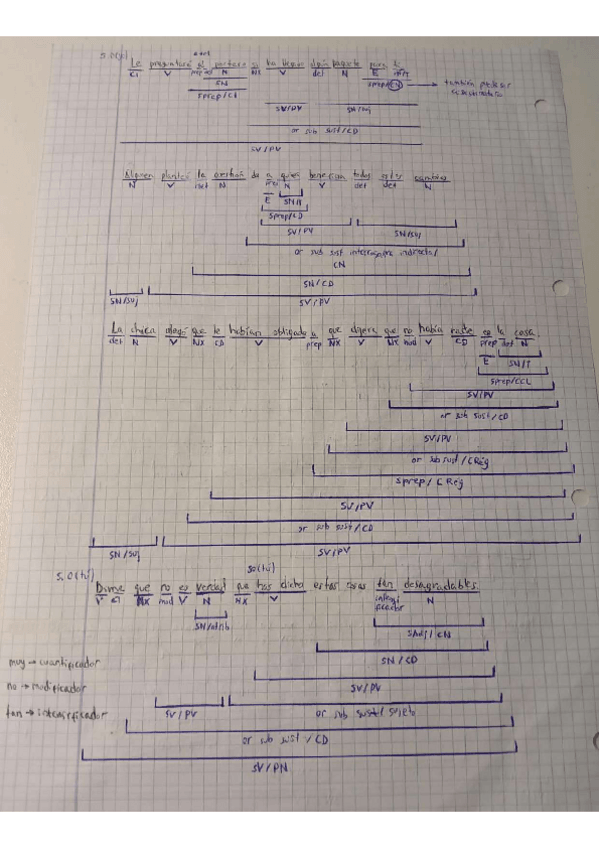 Le preguntaré al portero si ha llegado algún paquete para ti
CI V N NX V det N E
SN
sprep/CI sprep/CN → también puede ser
SV/PV SN/Suj
or sub sust/CD
SV/PV
Alguien planteó la cuestión de a quién beneficia todos estos cambios
N V det N N V det det N
E SN/T
Sprep/CI
SV/PV SN/Suj
or sub sust interrogativa indirecta/
CN
SN/CD
SN/Suj SV/PV
La chica alegó que le habían obligado a que dijera que no había nadie en la casa
det N V NX CD V prep NX V NX mod V CD prep det N
E SN/T
sprep/CCL
SV/PV
or sub sust/CD
SV/PV
or sub sust/CReg
Sprep/CReg
SV/PV
or sub sust/CD
SN/Suj SV/PV
S.O(tú) SO(tú)
Dime que no es verdad que has dicho estas cosas tan desagradables
V CI NX mod V N NX V intensificador N
SN/atrib SAdj/CN
SN/CD
muy → cuantificador
SV/PV
no → modificador
SV/PV or sub sust/sujeto
tan → intensificador
or sub sust/CD
SV/PN